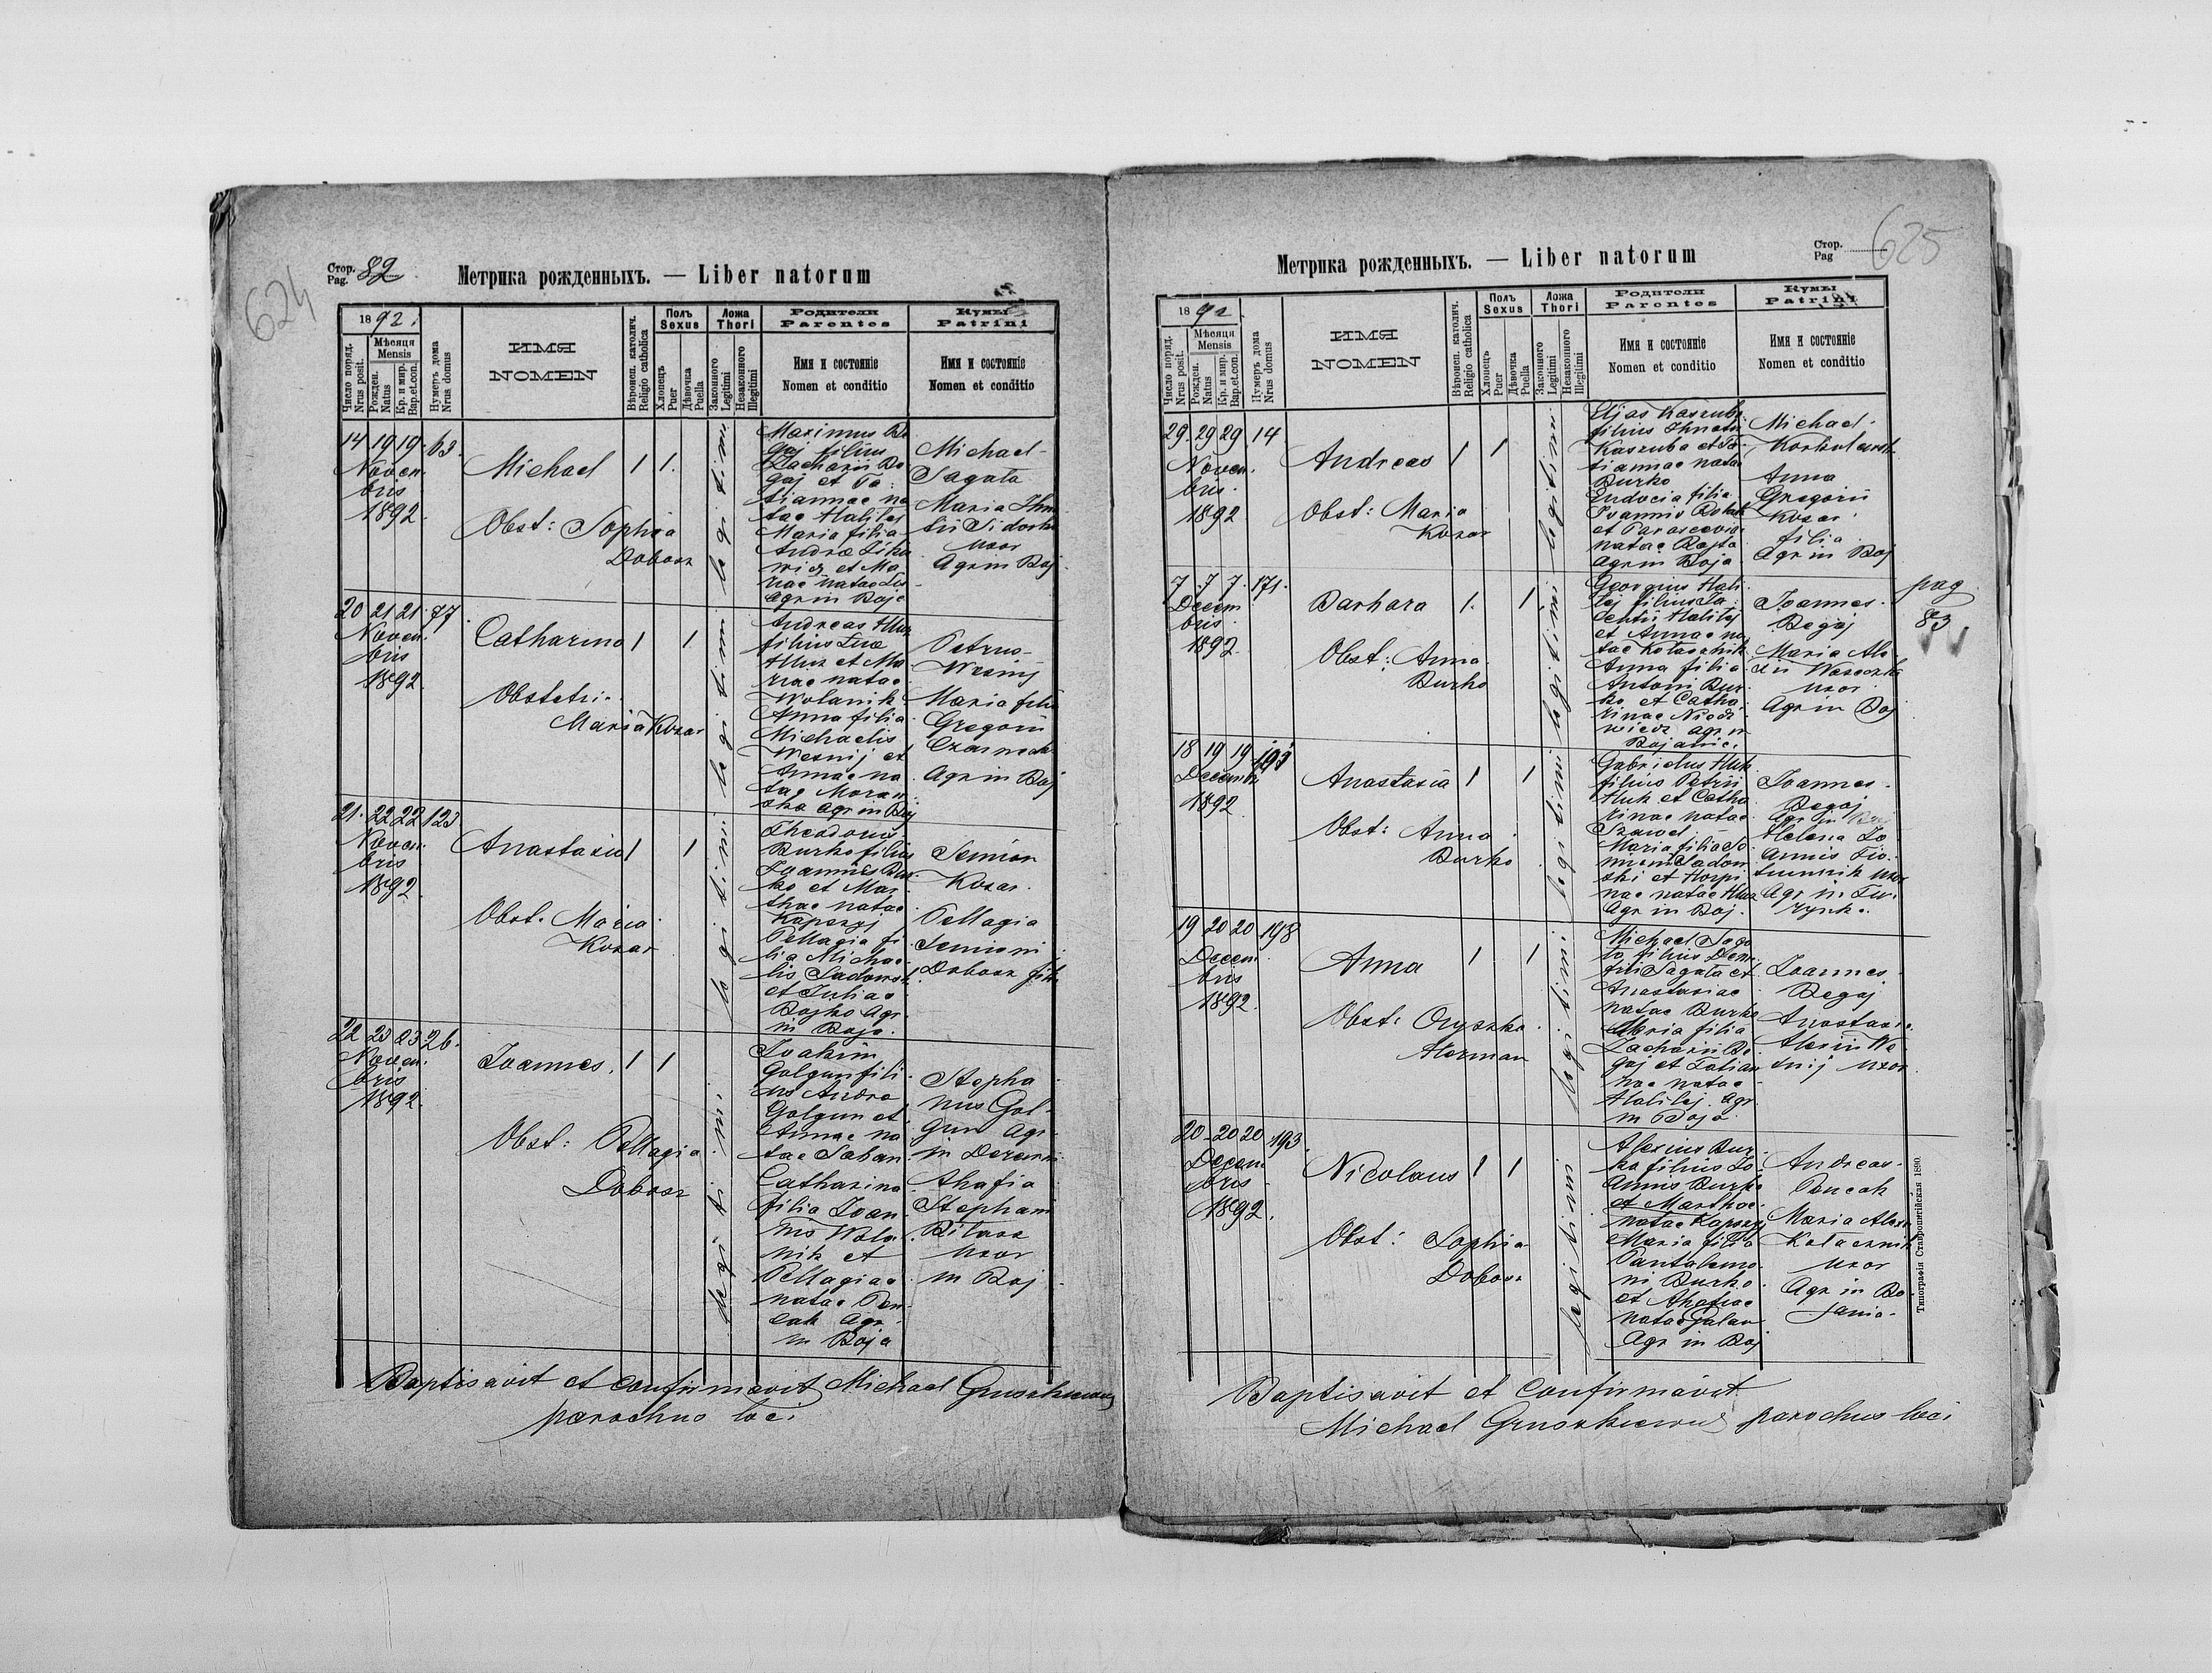 624
Стор.
Pag. 82
Метрика рожденныхъ. — Liber natorum
1892.
Число поряд.
Nrus posit.
Мѣсяця
Mensis
Рожден.
Natus
Кр. и мир.
Bap.et.con.
Нумеръ дома
Nrus domus
ИМЯ
NOMEN
Вѣроисп. католич.
Religio catholica
Полъ
Sexus
Хлопецъ
Puer
Дѣвочка
Puella
Ложа
Thori
Законного
Legitimi
Незаконного
Illegitimi
Родители
Parentes
Имя и состояніе
Nomen et conditio
Кумы
Patrini
Имя и состояніе
Nomen et conditio
14 19 19 63.
Novem
bris
1892.
Michael 1 1.
Obst: Sophia
Dobosz
legitimi
Maximus Be
gaj filius
Zacharii Be
gaj et Ta
tiannae na
tae Halilej
Maria filia
Andreae
et Ma
riae natae
Agr in Boja
Michael
Sagata
Maria
Sidorko
uxor
Agr in Boj
20 21 21 77.
Novem
bris
1892.
Catharina 1 1
Obstetri.
Maria Kozar
legitimi
Andreas Huk
filius Lucae
Huk et Ma
riae natae
Wolanik
Anna filia
Michaelis
Wesnij et
Annae na
tae
Agr in Boj
Petrus
Wesnij
Maria filia
Gregorii
Agr in Boj
21. 22 22 123
Novem
bris
1892.
Anastasia 1 1
Obst. Maria
Kozar
legitimi
Theodorus
Burko filius
Joannis Bur
ko et Mar
thae natae
Kapszyj
Pellagia fi
lia Michae
lis Sadowsk
et Juliae
Bojko Agr
in Boja.
Semion
Kozar.
Pellagia
Semioni
Dobosz filia
22 23 23 26.
Novem
bris
1892.
Joannes. 1 1
Obst: Pellagia
Dobosz
legitimi
Joakim
Golgun fili
us Andreae
Golgun et
Annae na
tae Saban
Catharina
filia Joan
nis Wola
nik et
Pellagiae
natae Pen
cak Agr
in Boja
Stepha
nus Gol
gun Agr
in
Ahafia
Stephani
Bilasz
uxor
in Boj
Baptisavit et confirmavit Michael Gruszkiewicz
parochus loci.
Метрика рожденныхъ. — Liber natorum
Стор.
Pag
625
1892
Число поряд.
Nrus posit.
Мѣсяця
Mensis
Рожден.
Natus
Кр. и мир.
Bap.et.con.
Нумеръ дома
Nrus domus
ИМЯ
NOMEN
Вѣроисп. католич.
Religio catholica
Полъ
Sexus
Хлопецъ
Puer
Дѣвочка
Puella
Ложа
Thori
Законного
Legitimi
Незаконного
Illegitimi
Родители
Parentes
Имя и состояніе
Nomen et conditio
Кумы
Patrini
Имя и состояніе
Nomen et conditio
29. 29 29 14
Novem
bris.
1892
Andreas 1 1
Obst: Maria
Kozar
legitimi
Elias Kaszuba
filius Ihnatii
Kaszuba et Ta
tiannae natae
Burko
Eudocia filia
Joannis
et Parascevia
natae Bojko
Agr in Boja
Michael
Anna
Gregorii
Kozar
filia
Agr in Boj
7 7 7 171.
Decem
bris.
1892.
Barbara 1. 1
Obst: Anna
Burko
legitimi
Georgius Hali
lej filius
Halilej
et Annae na
tae Kolacznik
Anna filia
Antoni Bur
ko et Catha
rinae Niedz
wiedz Agr in
Bojanic.
Joannes
Begaj
Maria Ale
xii
uxor
Agr in Boj
pag
83
18 19 19 193
Decembr
1892
Anastasia 1 1
Obst: Anna
Burko
legitimi
Gabrielus Huk
filius Petrii
Huk et Catha
rinae natae
Szawel
Maria filia
Sadow
ski et Horpi
nae natae Huk
Agr in Boj.
Joannes
Begaj
Agr in Boj
Helena Jo
annis
uxor
Agr in
19 20 20 198
Decem
bris
1892.
Anna 1 1
Obst: Oryszka
Herman
legitimi
Michael Saga
ta filius Dem
Sagata et
Anastasiae
natae Burko
Maria filia
Zacharii Be
gaj et Tatian
nae natae
Halilej. Agr
in Boja.
Joannes
Begaj
Anastasia
Alexii We
snij uxor
20 20 20 193.
Decem
bris
1892.
Nicolaus 1 1
Obst: Sophia
Dobosz
legitimi
Alexius Bur
ko filius Jo
annis Burko
et Marthae
natae Kapszyj
Maria filia
Pantalemo
ni Burko
et Ahafiae
natae
Agr in Boj
Andreas
Pencak
Maria Alexii
Kolacznik
uxor
Agr in Bo
janic.
Типографія Ставропигійская 1890.
Baptisavit et confirmavit
Michael Gruszkiewicz parochus loci